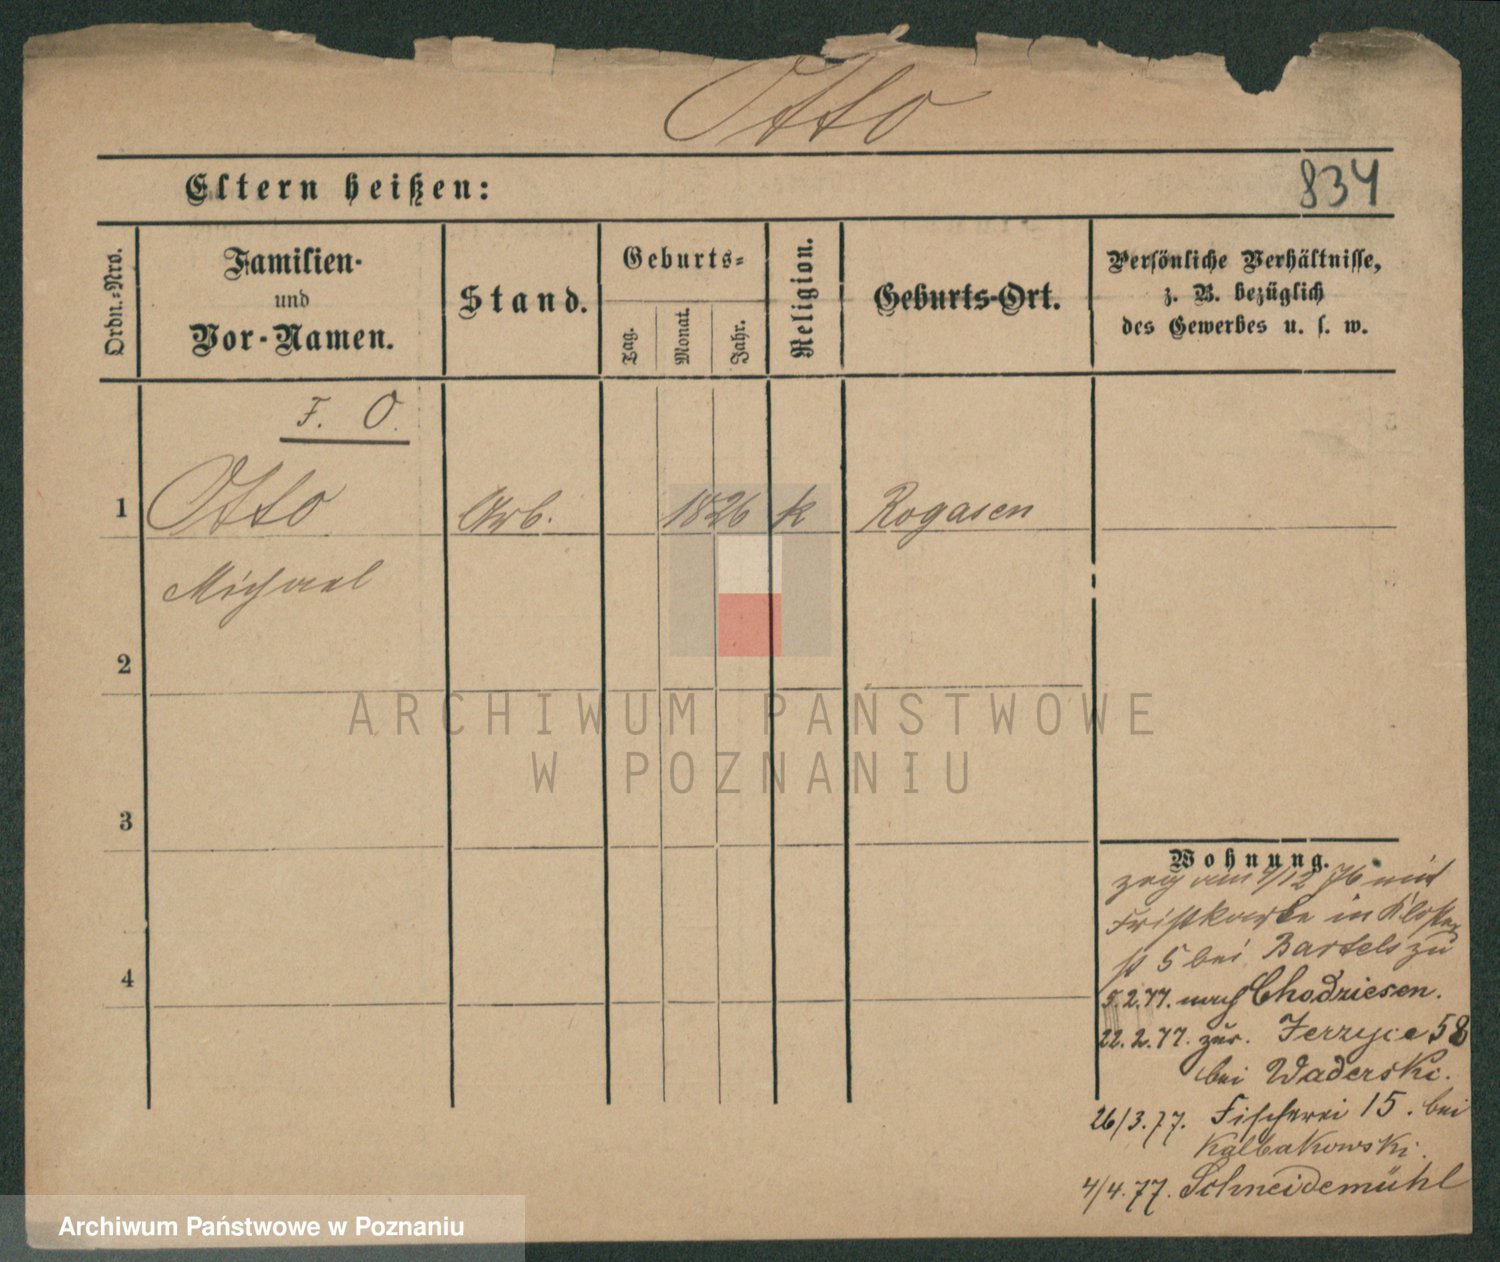 Otto
834
Eltern heißen:
Ordn.-Nro.
Familien-
und
Vor-Namen.
Stand.
Geburts-
Tag.
Monat.
Jahr.
Religion.
Geburts-Ort.
Persönliche Verhältnisse,
z. B. bezüglich
des Gewerbes u. s. w.
F. O.
1 Otto Arb. 1826 k Rogasen
Michael
2
ARCHIWUM PAŃSTWOWE
W POZNANIU
3
Wohnung.
zog am 1/12 76 mit
Fristkarte in Kloster
st 5 bei Bartels zu
5.2.77. nach Chodziesen.
22.2.77. zur. Jerzyce 58
bei Waderski.
26/3.77. Fischerei 15. bei
Kalbakowski.
4/4.77. Schneidemühl
4
Archiwum Państwowe w Poznaniu